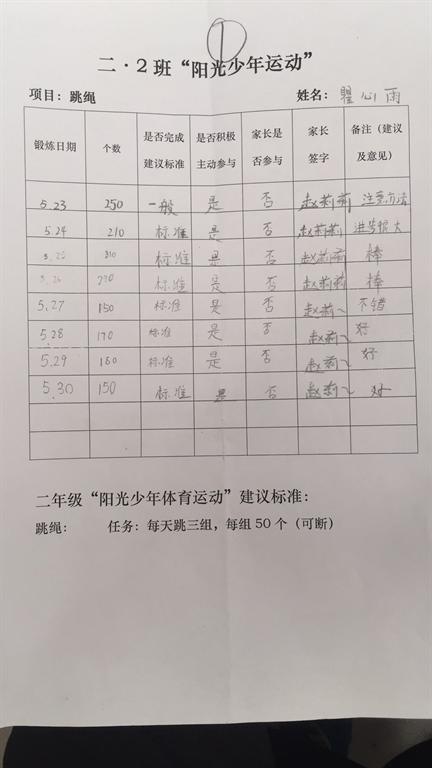 ①
二·2班“阳光少年运动”
项目：跳绳 姓名：瞿心雨
锻炼日期 个数 是否完成建议标准 是否积极主动参与 家长是否参与 家长签字 备注（建议及意见）
5.23 250 一般 是 否 赵莉莉 注意方法
5.24 210 标准 是 否 赵莉莉 进步很大
标准 是 否 赵莉莉 棒
标准 是 否 赵莉莉 棒
5.27 150 标准 是 否 赵莉莉 不错
5.28 170 标准 是 否 赵莉~ 好
5.29 180 标准 是 否 赵莉~ 好
5.30 150 标准 是 否 赵莉~ 好
二年级“阳光少年体育运动”建议标准：
跳绳： 任务：每天跳三组，每组 50 个（可断）